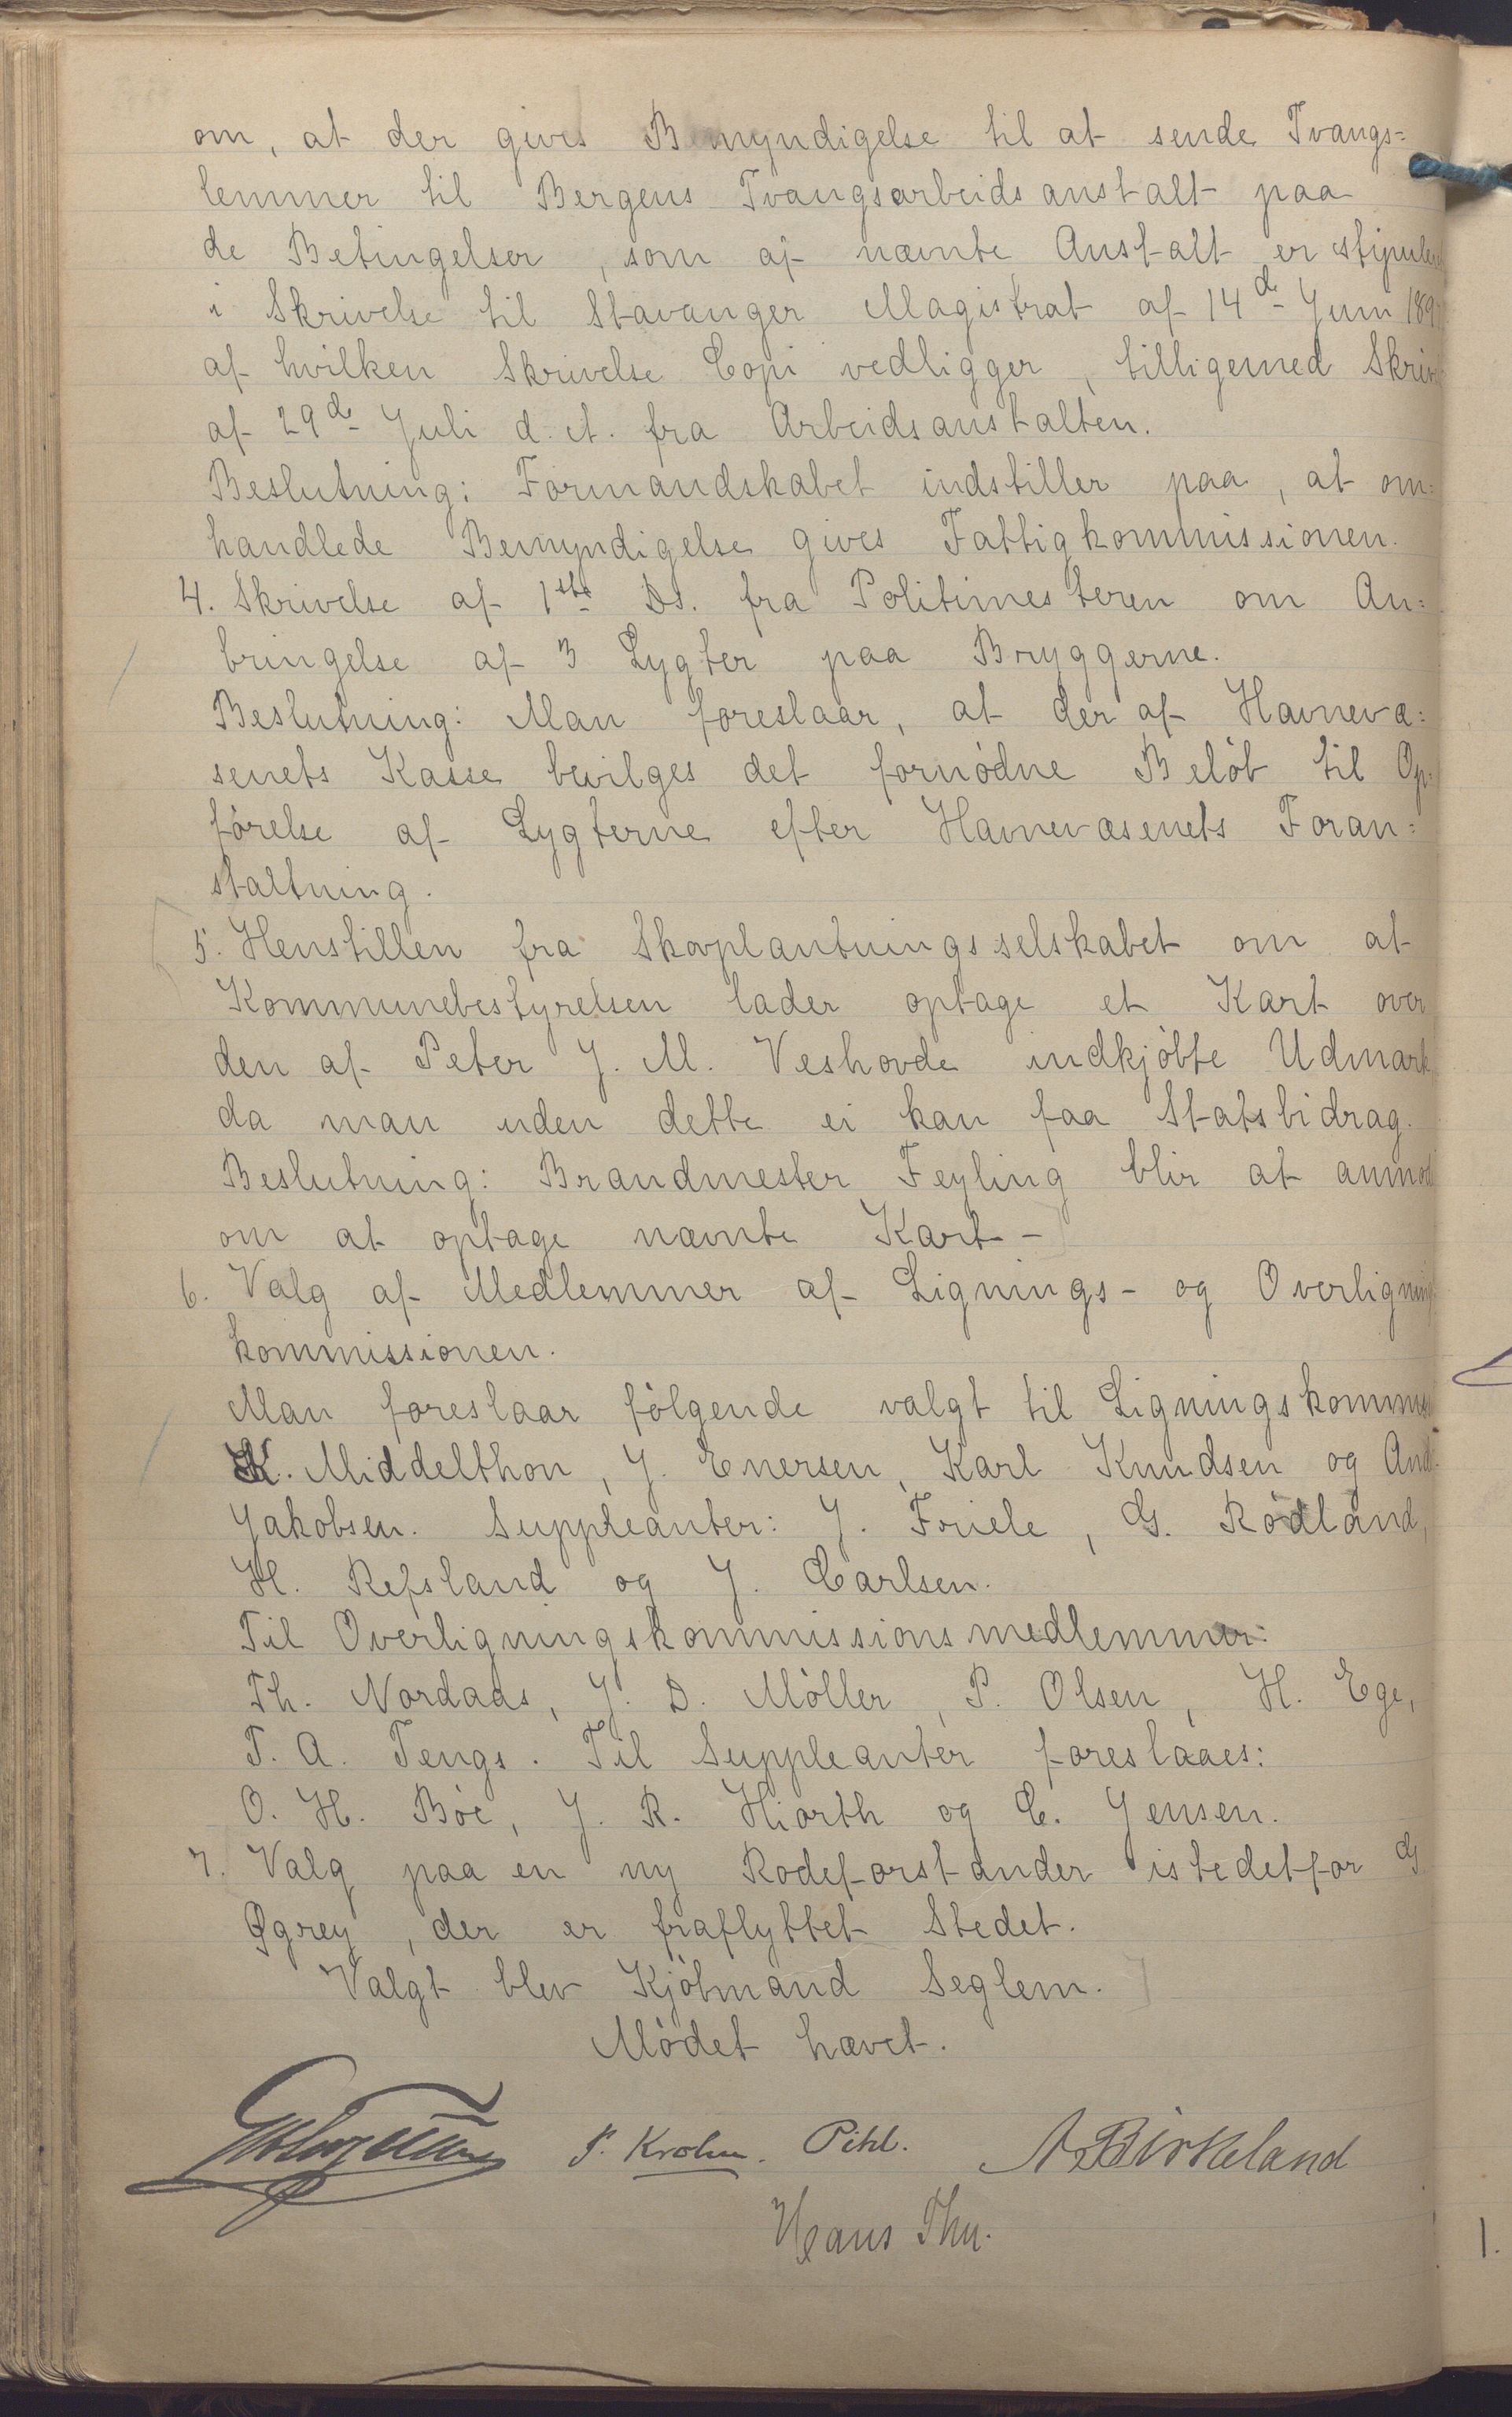 om, at der gives Bemyndigelse til at sende Tvangs=
lemmer til Bergens Tvangsarbeidsanstalt paa
de Betingelser, som af nævnte Anstalt er stipule
i Skrivelse til Stavanger Magistrat af 14de Juni 189
af hvilken Skrivelse Copi vedligger, tilligemed Skriv
af 29de Juli d. A. fra Arbeidsanstalten.
Beslutning: Formandskabet indstiller paa, at om=
handlede Bemyndigelse gives Fattigkommissionen.
4. Skrivelse af 1ste Ds. fra Politimesteren om An=
bringelse af 3 Lygter paa Bryggerne.
Beslutning: Man foreslaar, at der af Havnevæ=
senets Kasse bevilges det fornødne Beløb til Op=
førelse af Lygterne efter Havnevæsenets Foran=
staltning.
5. Henstillen fra Skovplantningsselskabet om at
Kommunebestyrelsen lader optage et Kart over
den af Peter J. M. Veshovde indkjøbte Udmark,
da man uden dette ei kan faa Statsbidrag.
Beslutning: Brandmester Feyling blir at anmod
om at optage nævnte Kart -
6. Valg af Medlemmer af Lignings- og Overligning
kommissionen.
Man foreslaar følgende valgt til Ligningskommis
K. Middelthon, J. Enersen, Karl Knudsen og And.
Jakobsen. Suppleanter: J. Friele, G. Rødland,
H. Refsland og J. Carlsen.
Til Overligningskommissionsmedlemmer:
Th. Nordaas, J. D. Møller, P. Olsen, H. Ege,
T. A. Tengs. Til Suppleanter foreslaaes:
O. H. Bøe, J. R. Hiorth og C. Jensen.
7. Valg paa en ny Rodeforstander istedetfor G
Øgrey, der er fraflyttet Stedet.
Valgt blev Kjøbmand Seglem.
Mødet hævet.
P. Krohn. Pihl. A Birkeland
Hans Thu.
1.